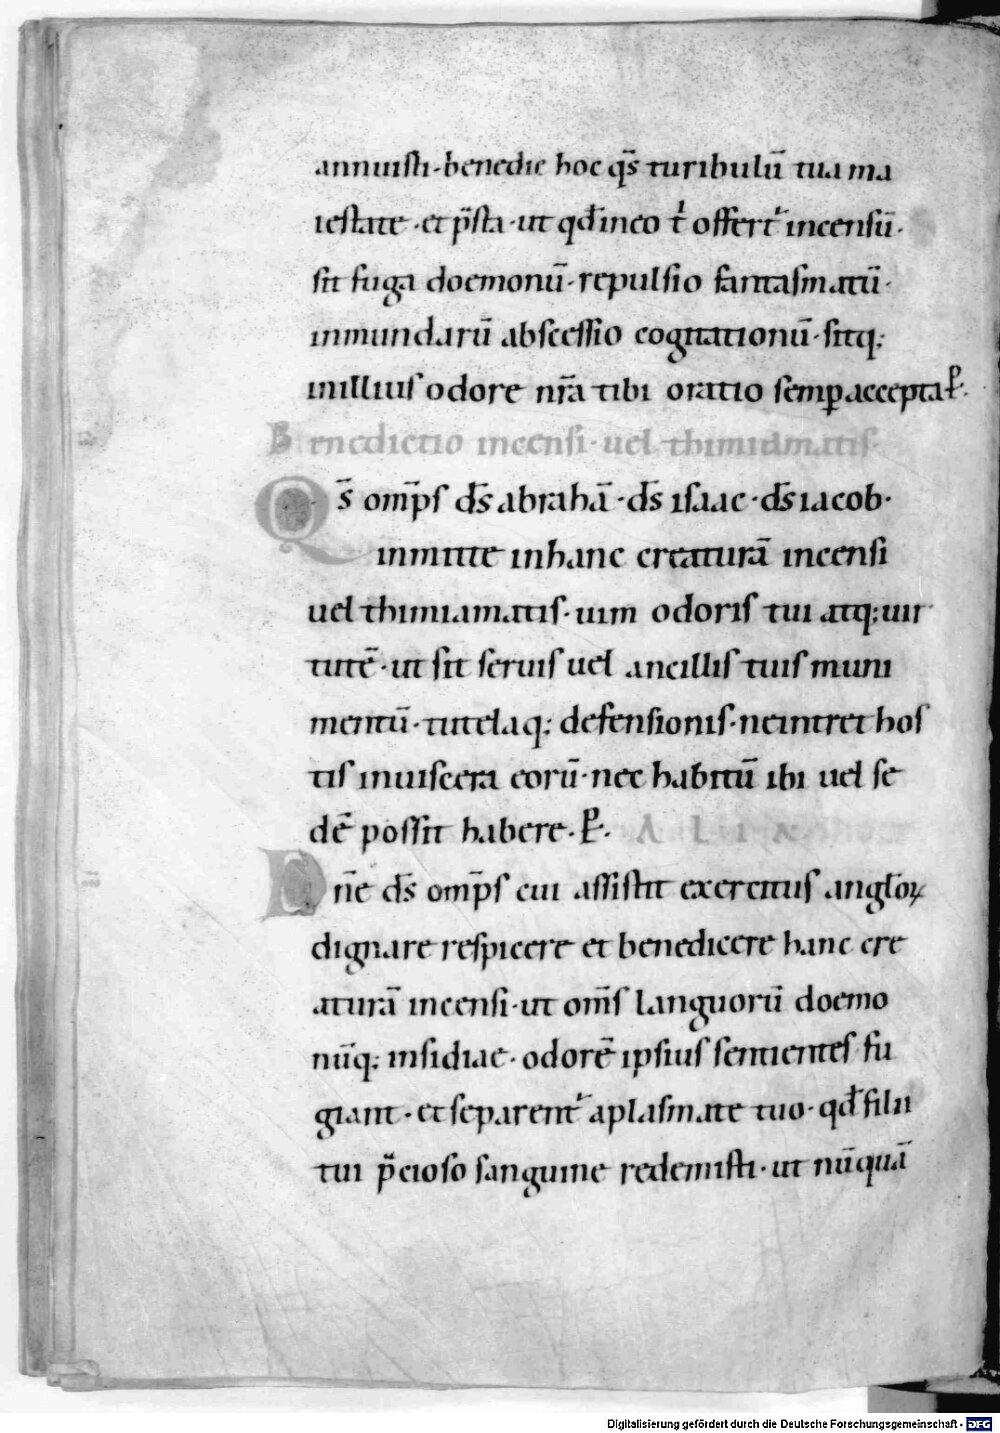 annuisti · benedic hoc qs̄ turibulū tua ma
iestate · et p̄sta · ut qđ in eo t̄ offert᷑ incensū ·
sit fuga doemonū · repulsio fantasmatū ·
inmundarū abscessio cognationū · sitq;
inillius odore nr̄a tibi oratio semꝑ accepta ꝑ ·
Benedictio incensi · uel thimiamatis ·
Qs̄ omp̄s ds̄ abrahā · ds̄ isaac · ds̄ iacob ·
inmitte inhanc creaturā incensi
uel thimiamatis · uim odoris tui atq; uir
tutē · ut sit seruis uel ancillis tuis muni
mentū · tutelaq; defensionis · neintret hos
tis inuiscera eorū · nec habitū ibi uel se
dē possit habere · ꝑ · ALIA
Dn̄e ds̄ omp̄s cui assistit exercitus angloꝝ
dignare respicere et benedicere hanc cre
aturā incensi · ut om̄s languorū doemo
nūq; insidiae · odorē ipsius sentientes fu
giant · et separent᷑ aplasmate tuo · qđ filii
tui p̄cioso sanguine redemisti · ut nūquā
Digitalisierung gefördert durch die Deutsche Forschungsgemeinschaft - DFG